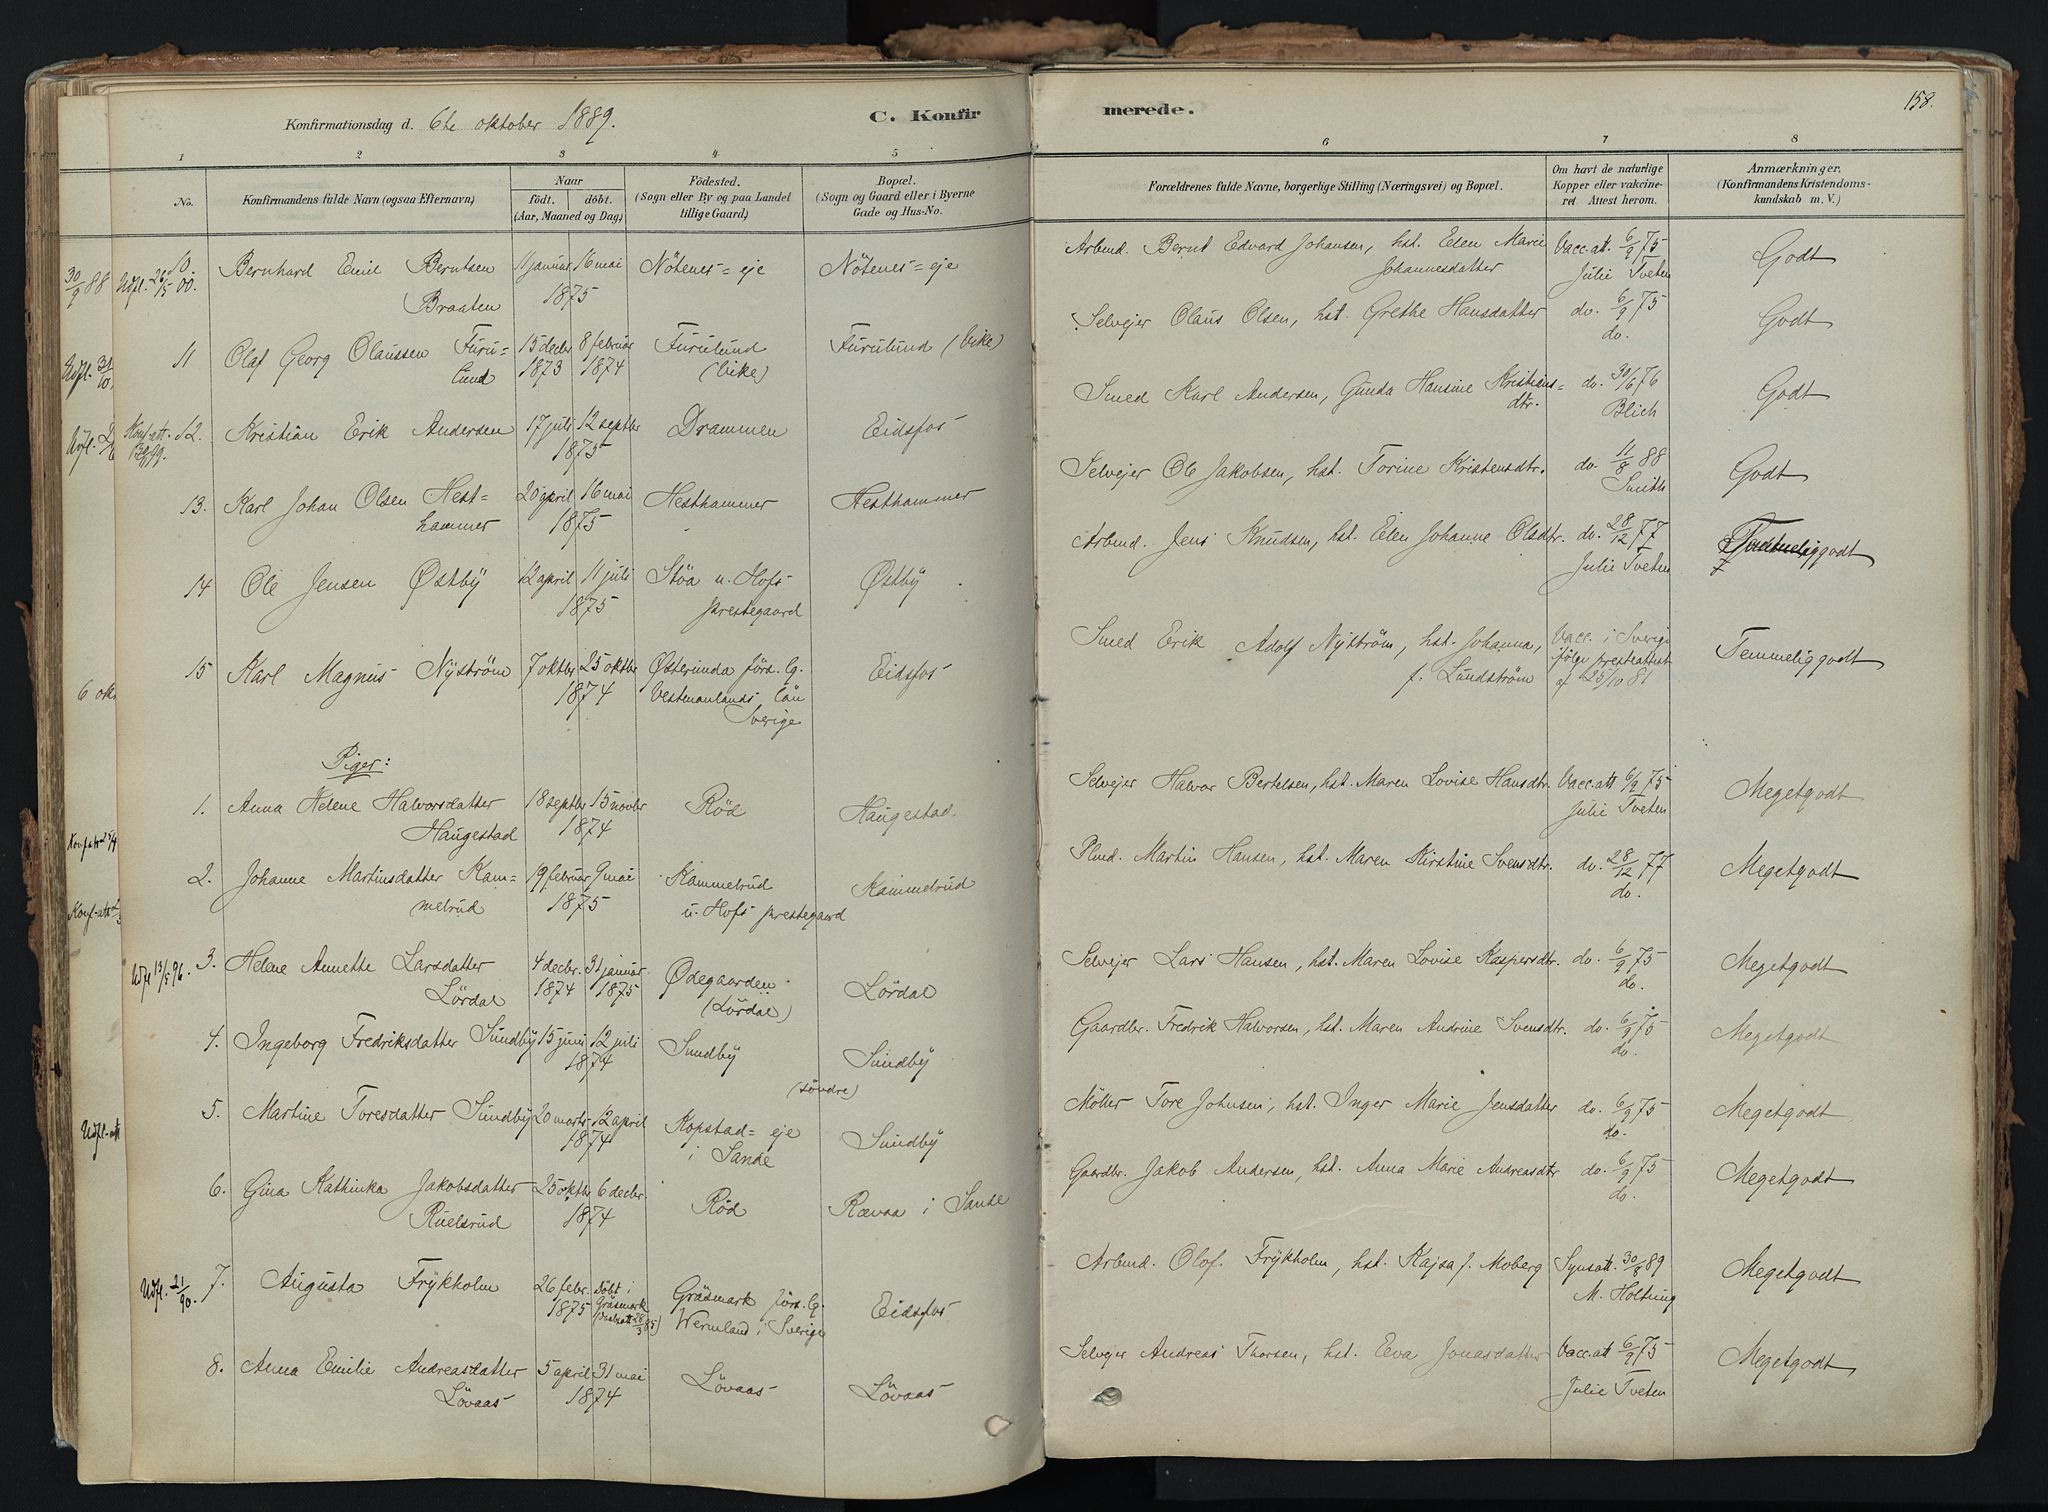 Konfirmationsdag d. 6te oktober 1889.
C. Konfir
merede.
158.
1 2 3 4 5 6 7 8
No.
Konfirmandens fulde Navn (ogsaa Efternavn.)
Naar
födt. döbt.
(Aar, Maaned og Dag.)
Födested.
(Sogn eller By og paa Landet
tillige Gaard.)
Bopæl.
(Sogn og Gaard eller i Byerne
Gade og Hus-No.
Forældrenes fulde Navne, borgerlige Stilling (Næringsvei) og Bopæl.
Om havt de naturlige
Kopper eller vakcine-
ret. Attest herom.
Anmærkninger.
(Konfirmandens Kristendoms-
kundskab m. V.)
30/9 88 Udfl. 26/5 00.
10 Bernhard Emil Berntsen 11 januar 16 mai Nötenes=eje Nötenes=eje
Braaten 1875
Arbmd. Bernt Edvard Johansen, hst. Elen Marie Vacc.att. 6/9 75 Godt
Johannesdatter Julie Tveten
Udfl. 31/10.
11 Olaf Georg Olaussen Furu= 15 decbr 8 februar Furulund Furulund (Vike)
lund 1873 1874 (Vike)
Selvejer Olaus Olsen, hst. Grethe Hansdatter do. 6/9 75 Godt
do.
Udfl.
Konf-att.
12. Kristian Erik Andersen 17 juli 12 septbr Drammen Eidsfos
1875
Smed Karl Andersen, Gunda Hansine Kristians= do. 30/6 76 Godt
dtr. Blich
13. Karl Johan Olsen Hest= 20 april 16 mai Hesthammer Hesthammer
hammer 1875
Selvejer Ole Jakobsen, hst. Torine Kristensdtr. do. 11/8 88 Godt
Smith
14 Ole Jensen Østby 12 april 11 juli Støa u. Hofs Østby
1875 prestegaard
Arbmd. Jens Knudsen, hst. Elen Johanne Olsdtr. do. 28/12 77 Temmeliggodt
Julie Tveten
15 Karl Magnus Nyström 7 oktbr 25 oktbr Österunda förs. lg. Eidsfos
1874 Vestmanlands län
Sverige
Smed Erik Adolf Nyström, hst. Johanna, Vacc. i Sverige Temmeliggodt
f. Lundström ifølge presteattest
af 25/10 81
6 okt
Piger:
1. Anna Helene Halvorsdatter 18 septbr 15 novbr Röd Haugestad.
Haugestad 1874
Selvejer Halvor Bertelsen, hst. Maren Lovise Hansdtr. Vacc.att 6/9 75 Megetgodt
Julie Tveten
2. Johanne Martinsdatter Kam= 19 februar 9 mai Kammelrud Kammelrud
melrud 1875 u. Hofs prestegaard
Plmd. Martin Hansen, hst. Maren Kirstine Svensdtr. do. 28/12 77 Megetgodt
do.
Konf-att
Udfl 13/5 96.
3. Helene Annette Larsdatter 4 decbr. 31 januar Ødegaarden Lördal
Lördal 1874 1875 (Lördal)
Selvejer Lars Hansen, hst. Maren Lovise Kaspersdtr. do. 6/9 75 Megetgodt
do.
4. Ingeborg Fredriksdatter Sundby 15 juni 12 juli Sundby Sundby
1874 (søndre)
Gaardbr. Fredrik Halvorsen, hst. Maren Andrine Svensdtr. do. 6/9 75 Megetgodt
do.
Udfl-att
5. Martine Toresdatter Sundby 20 marts 12 april Kopstad=eje Sundby
1874 i Sande
Möller Tore Johnsen, hst. Inger Marie Jensdatter do. 6/9 75 Megetgodt
do.
6. Gina Kathinka Jakobsdatter 25 oktbr 6 decbr. Röd Rævaa i Sande
Ruelsrud 1874
Gaardbr. Jakob Andersen, hst. Anna Marie Andreasdtr do. 6/9 75 Megetgodt
do.
Udfl. 21/90.
7. Augusta Frykholm 26 febr. Döbt i Gräsmark förs. lg. Eidsfos
1875 Gräsmark Wermland i Sverige
Arbmd. Olof Frykholm, hst. Kajsa f. Moberg Synsatt. 30/8 89 Megetgodt
M. Holtung
8. Anna Emilie Andreasdatter 5 april 31 mai Lövaas Lövaas
Lövaas 1874
Selvejer Andreas Thorsen, hst. Eva Jonasdatter Vacc.att 6/9 75 Megetgodt
Julie Tveten